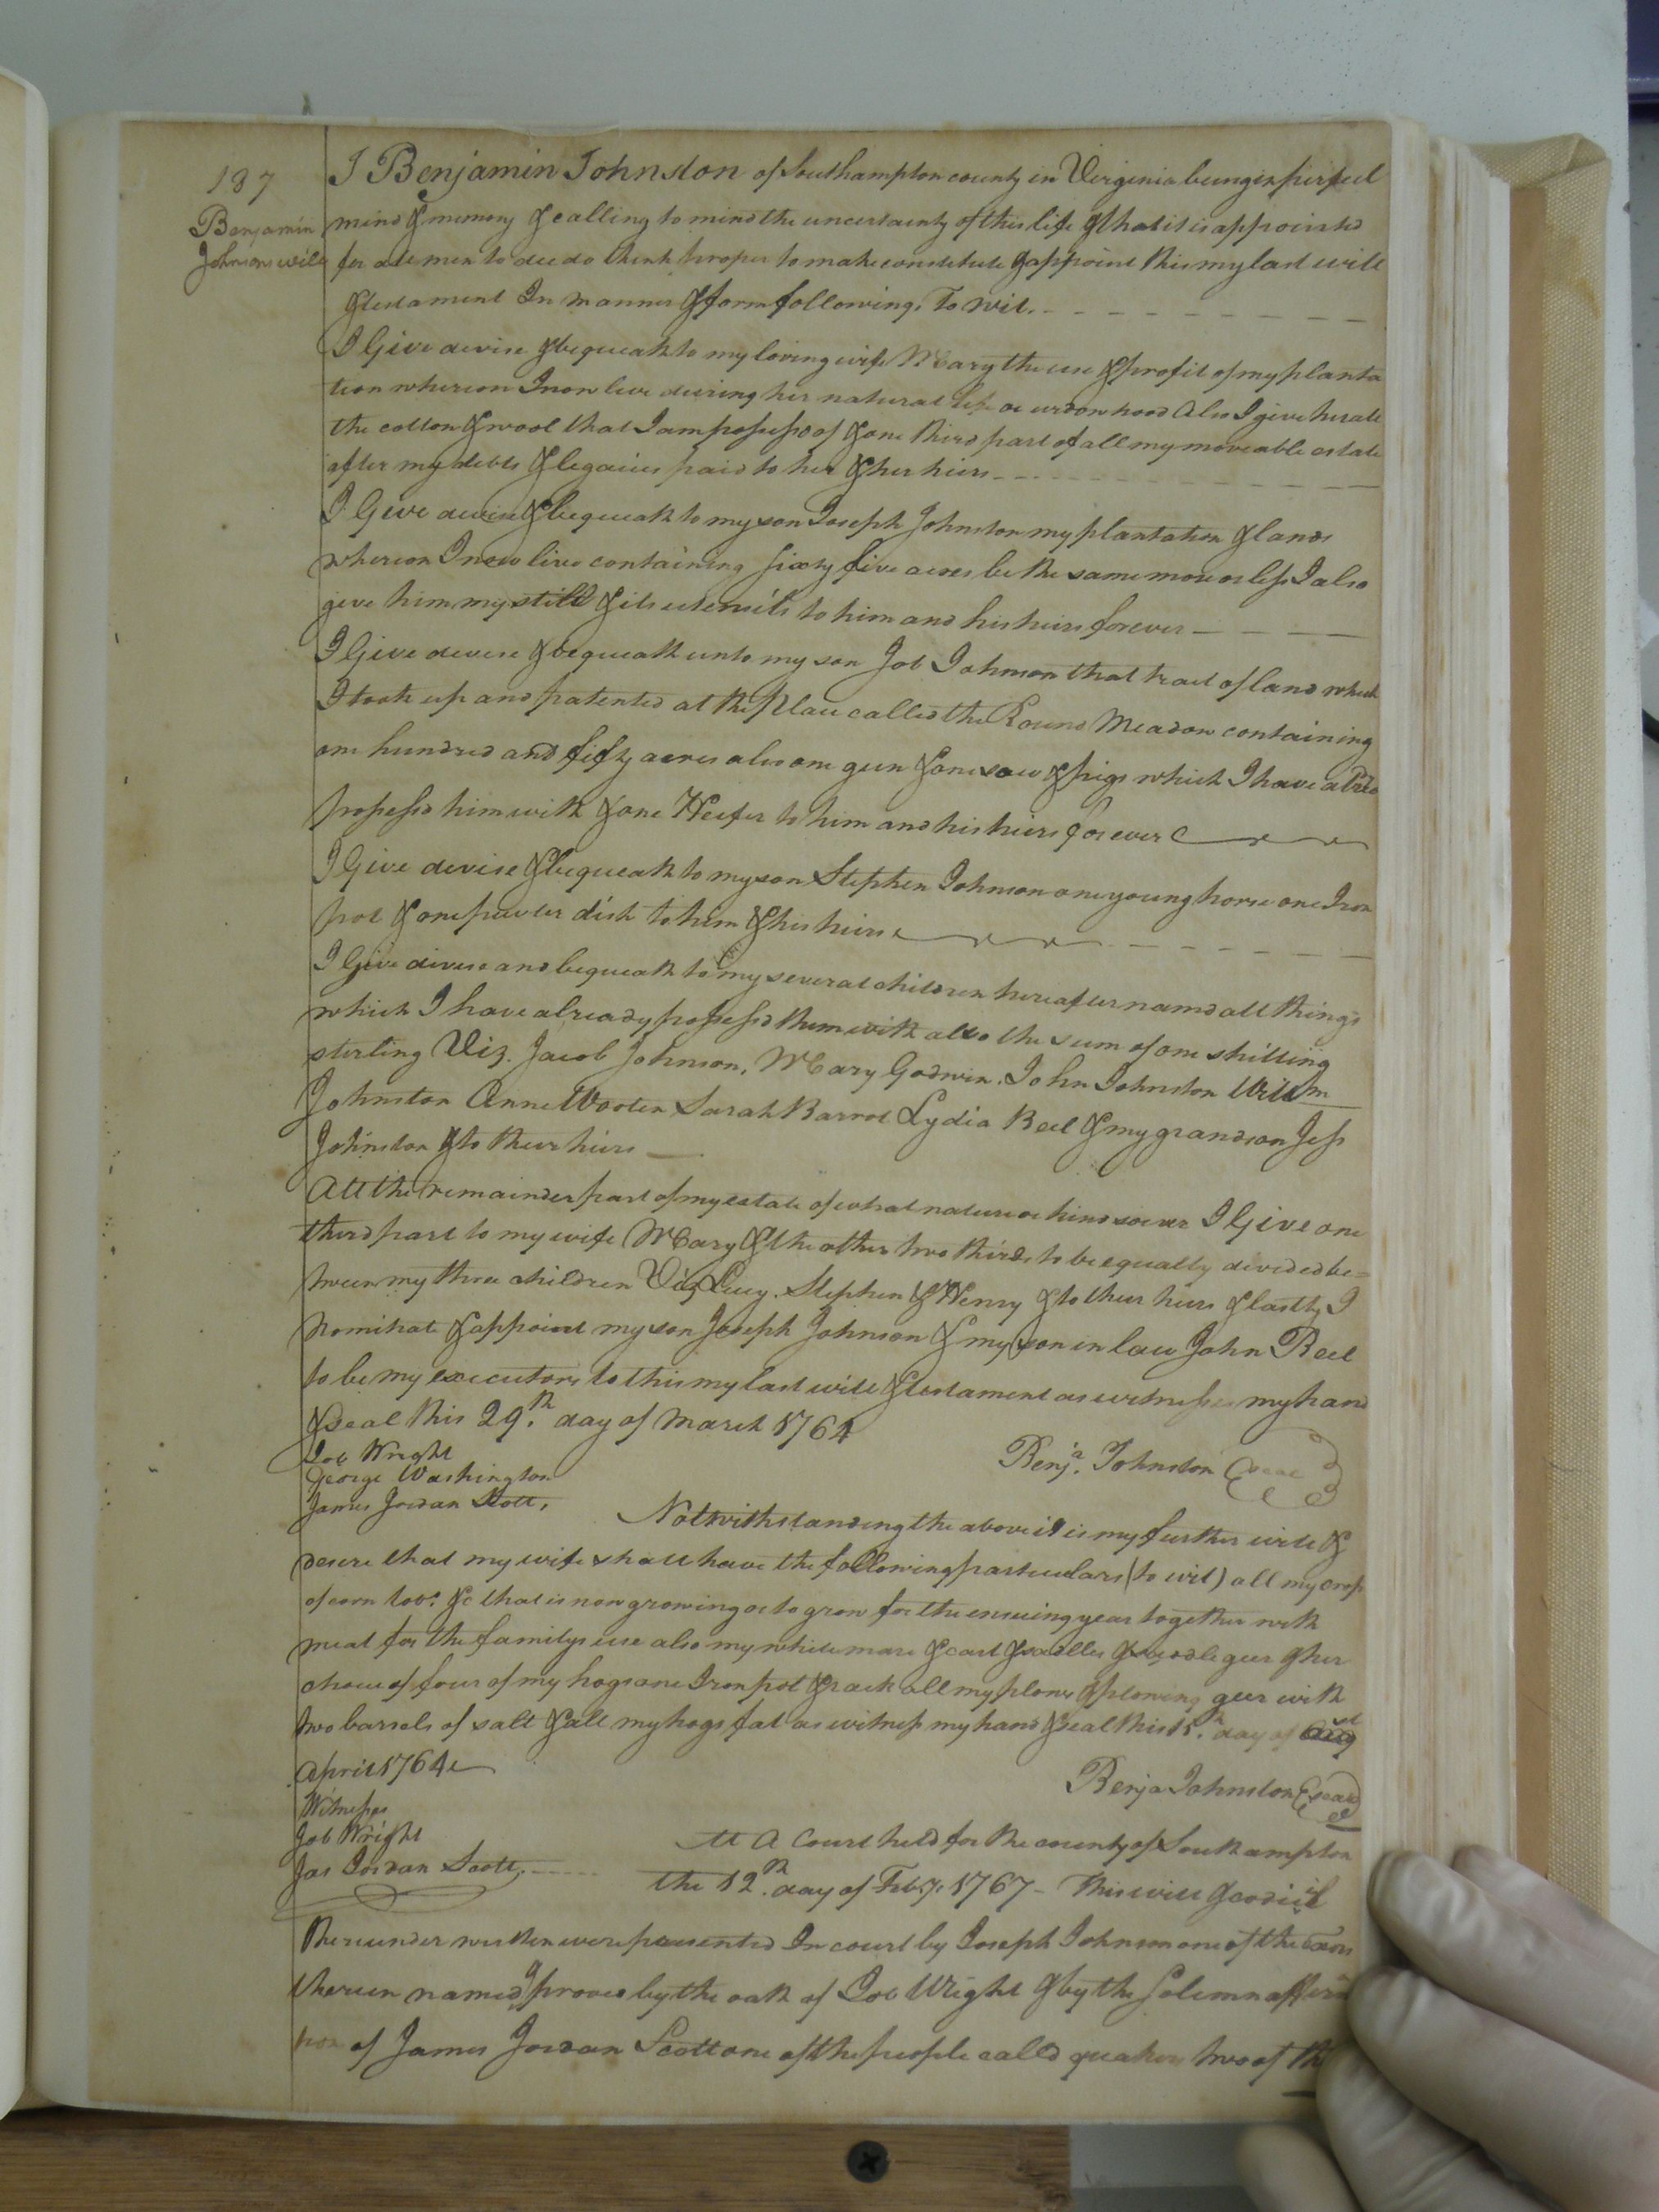 187
Benjamin
Johnsons will
I Benjamin Johnston of Southampton county in Virginia being in pirfect
mind & memory & calling to mind the uncertainty of this life & that it is appointed
for all men to die do think proper to make constitute & appoint this my last will
& testament In manner & form following. To wit.
I Give devise & bequeath to my loving wife Mary the use & profit of my planta
tion whereon I now live during her natural life or widowhood Also I give her all
the cotton & wool that I am possess'd of & one third part of all my moveable estate
after my debts & legacies paid to her & her heirs
I Give devise & bequeath to my son Joseph Johnston my plantation & lands
whereon I now live containing sixty five acres be the same more or less I also
give him my still & its utensils to him and his heirs forever
I Give devise & bequeath unto my son Job Johnson that tract of land which
I took up and patented at the Place called the Round Meadow containing
one hundred and fifty acres also one gun & one sow & pigs which I have alred
possess'd him with & one Heifer to him and his heirs for ever
I Give devise & bequeath to my son Stephen Johnson one young horse one Iron
pot & one pewter dish to him & his heirs
I Give devise and bequeath to my several children hereafter named all things
which I have already possess'd them with also the sum of one shilling
sterling Viz. Jacob Johnson, Mary Godwin. John Johnston Willm
Johnston Anne Wooten Sarah Barrot Lydia Beel & my grandson Jess
Johnston & to their heirs
All the remainder part of my estate of what nature or kind soever I Give one
third part to my wife Mary & the other two thirds to be equally divided be=
tween my three children Viz Lucy. Stephen & Henry & to their heirs & lastly I
Nominate & appoint my son Joseph Johnson & my son in law John Beel
to be my executors to this my last will & testament as witnesses my hand
& seal this 29th. day of March 1764
Job Wright
George Washington
James Jordan Scott,
Benja. Johnston Seal
Notwithstanding the above it is my further will &
desire that my wife shall have the following particulars (to wit) all my crop
of corn tob. &c that is now growing or to grow for the ensuing year together with
meat for the familys use also my white mare & cart & saddles & geer & her
choice of four of my hogs one Iron pot & rack all my plows & plowing geer with
two barrels of salt & all my hogs fat as witness my hand & seal this 15.th day of
April 1764
Benja Johnston Seal
Witnesses
Job Wright
Jas Jordan Scott,
At A Court held for the county of Southampton
the 12th. day of Feby. 1767 - This will & codicil
thereunder written were presented In court by Joseph Johnson one of the Exors
therein named & proved by the oath of Job Wright & by the solemn affirm
tion of James Jordan Scott one of the people call'd quakers two of the